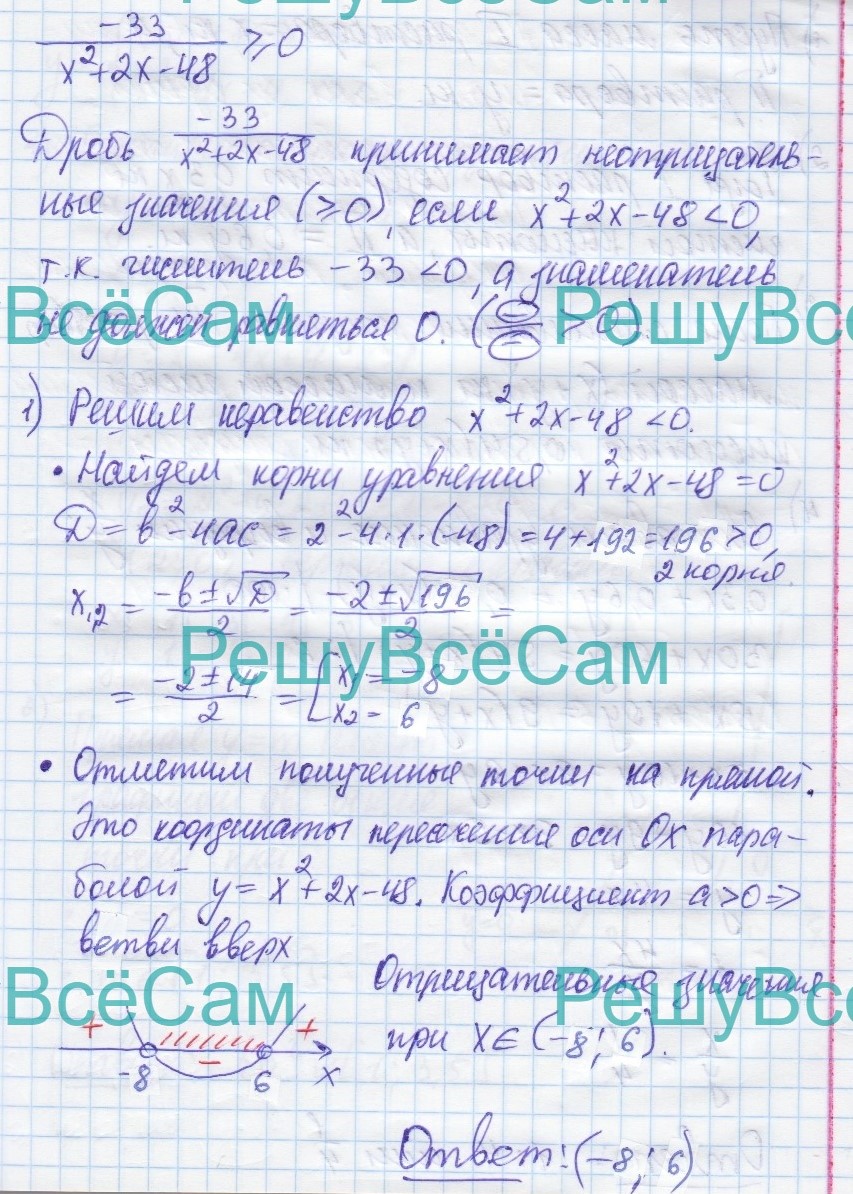 РешуВсёСам
-33
x²+2x-48 ≥0
Дробь -33/x²+2x-48 принимает неотрицатель-
ные значения (≥0), если x²+2x-48<0,
т.к. числитель -33<0, а знаменатель
ВсёСам РешуВсё
не должен равняться 0. (⊖/⊖ >0)
1) Решим неравенство x²+2x-48<0.
• Найдем корни уравнения x²+2x-48=0
D=b²-4ac=2²-4·1·(-48)=4+192=196>0,
2 корня.
x1,2 = -b±√D/2 = -2±√196/2 =
РешуВсёСам
= -2±14/2 = [x1=-8
x2= 6
• Отметим полученные точки на прямой.
Это координаты пересечения оси Ox пара-
болой y=x²+2x-48. Коэффициент a>0 =>
ветви вверх
Отрицательные значения
ВсёСам РешуВсё
при x∈(-8; 6).
+ - +
-8 6 x
Ответ: (-8; 6)